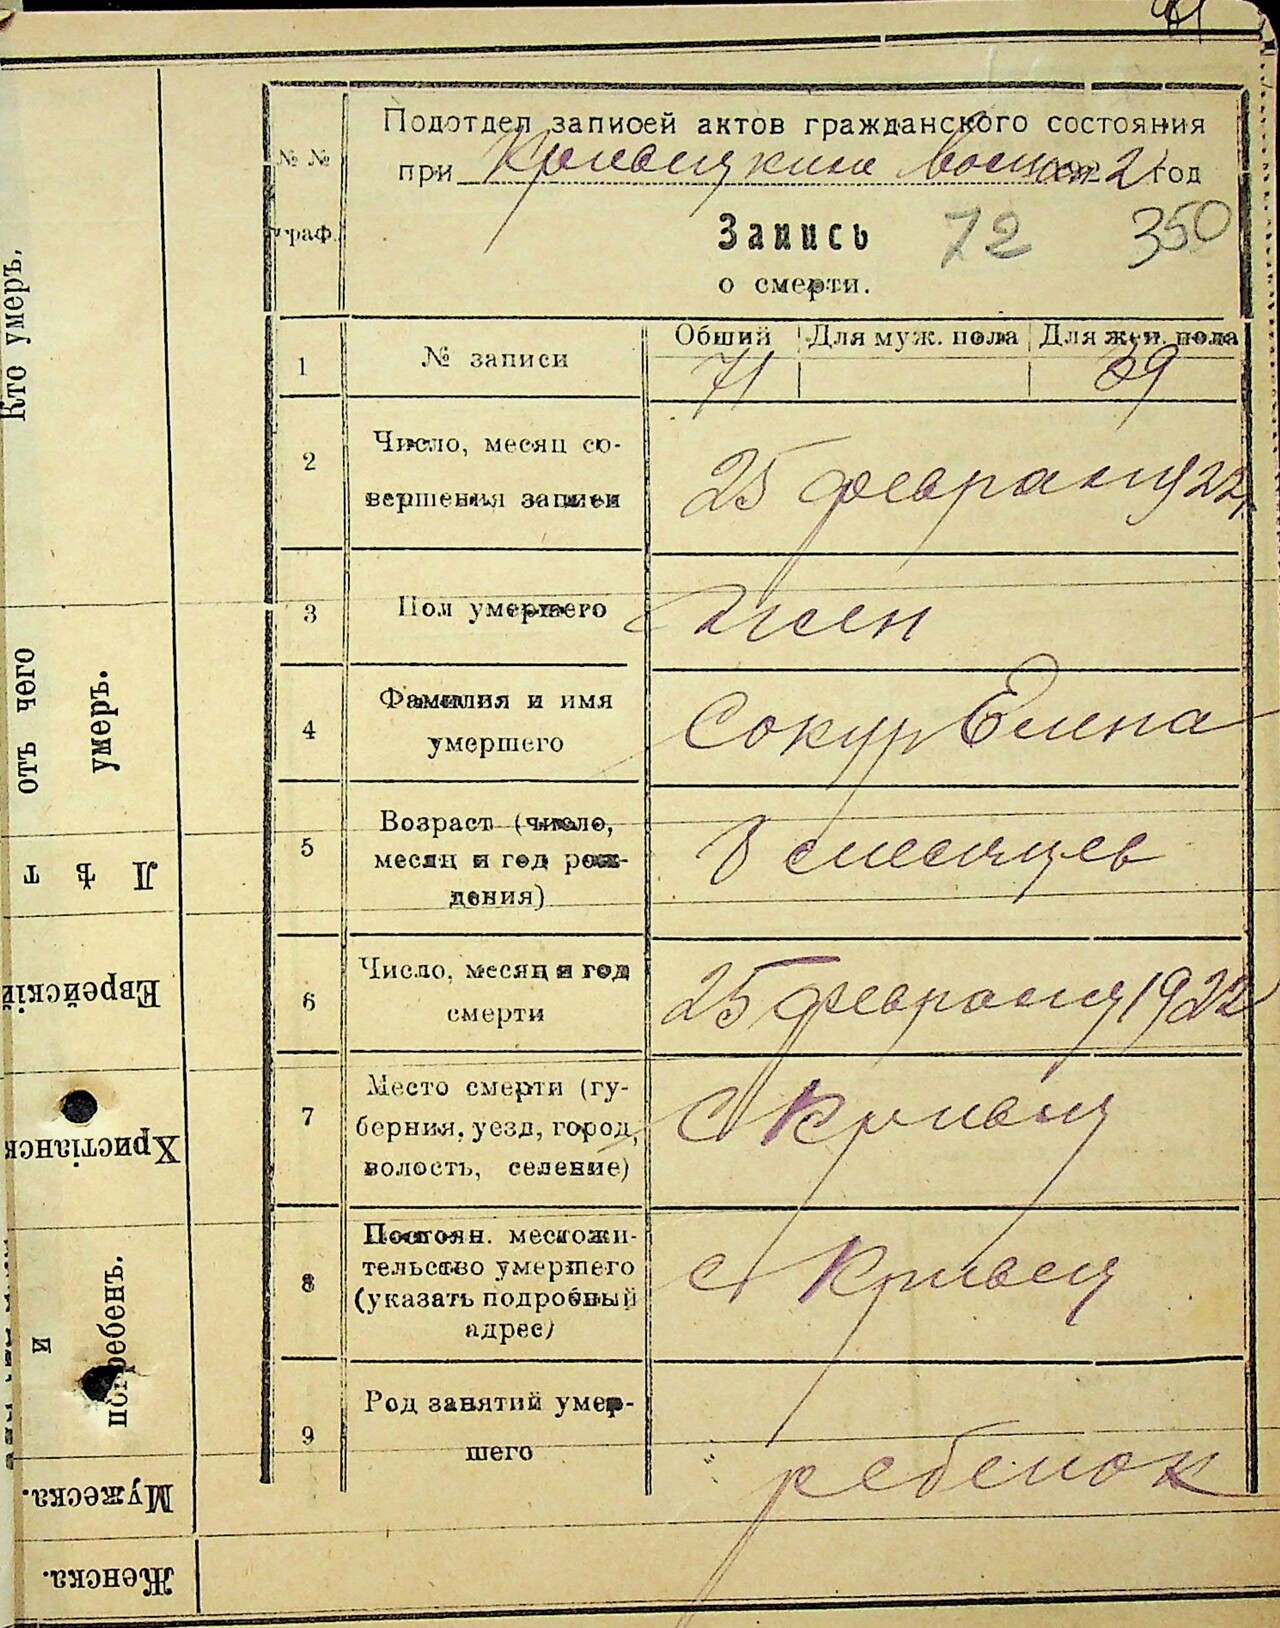 Подотдел записей актов гражданского состояния
при 192 2 год
№ №
граф.
Запись 72 350
о смерти.
Общий Для муж. пола Для жен. пола
1 № записи 71 39
2 Число, месяц со-
вершения записи 25 февраля 22
3 Пол умершего жен
4 Фамилия и имя
умершего Сокур Елена
5 Возраст (число,
месяц и год рож-
дения) 8 месяцев
6 Число, месяц и год
смерти 25 февраля 1922
7 Место смерти (гу-
берния, уезд, город,
волость, селение) с Кривец
8 Постоян. местожи-
тельство умершего
(указать подробный
адрес) с Кривец
9 Род занятий умер-
шего ребенок
Кто умеръ,
отъ чего
умеръ.
Лѣт
Еврейскій
Христіанск
и
погребенъ.
Мужеска.
Женска.